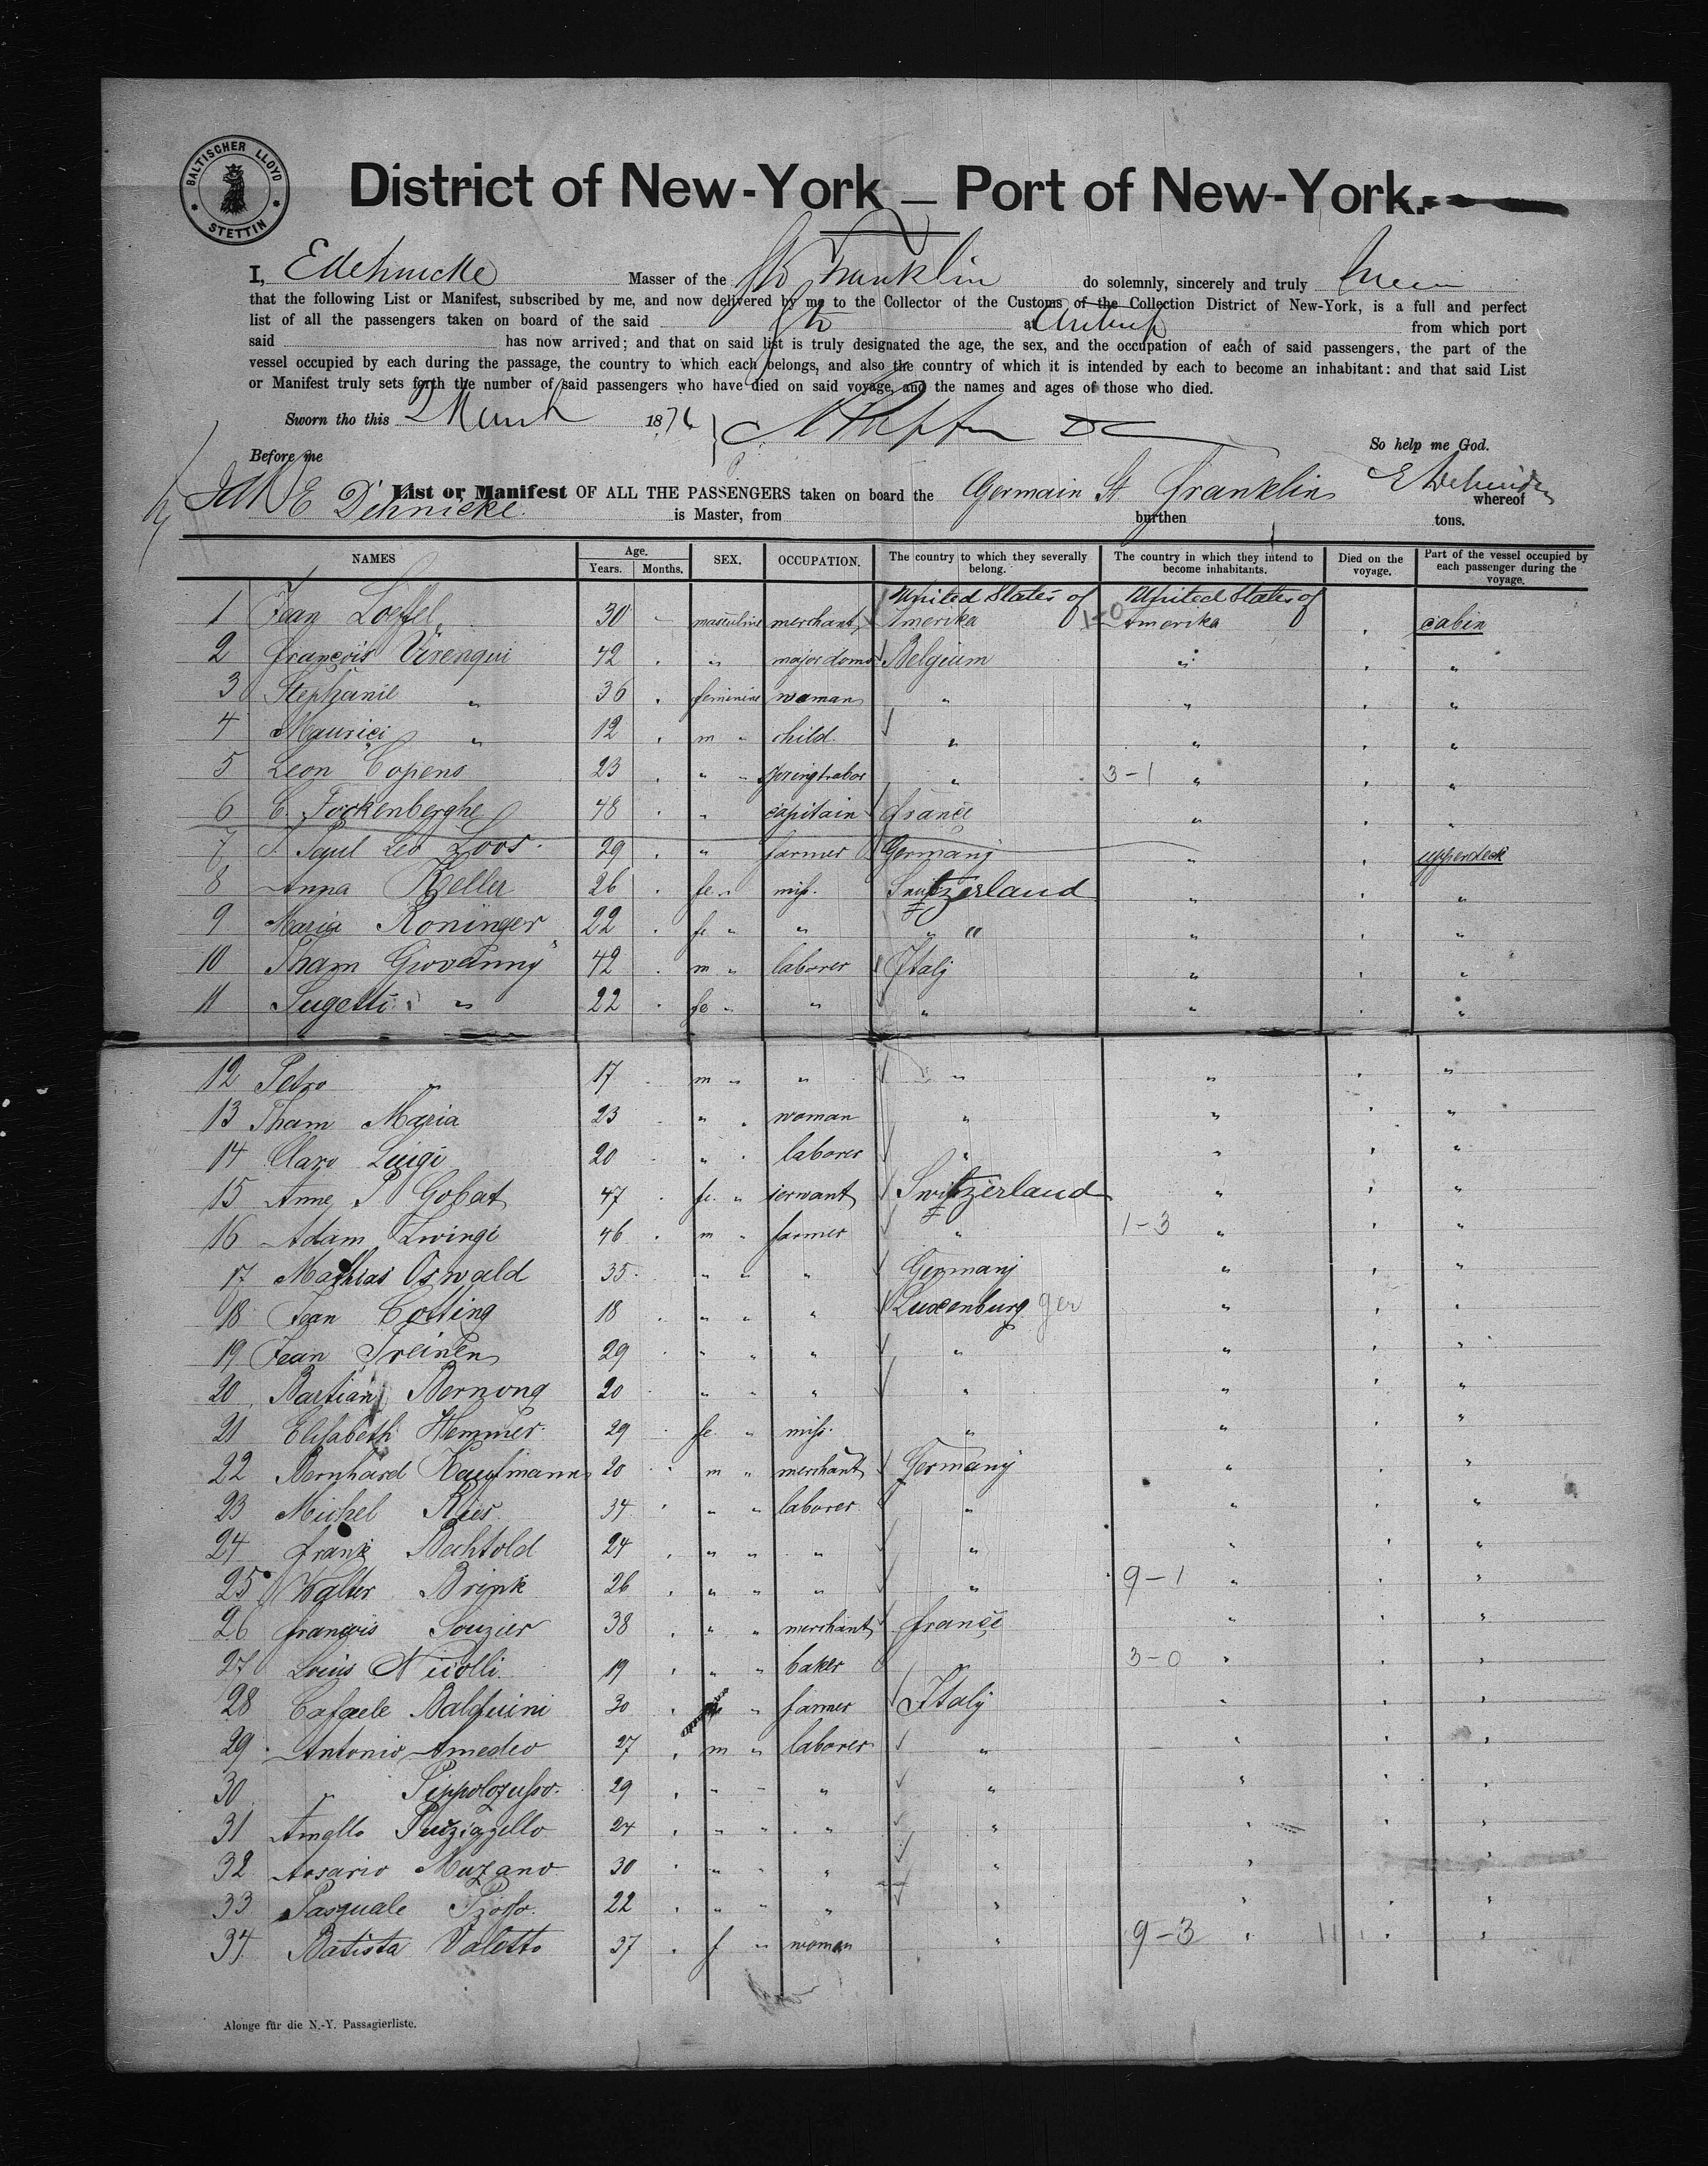 BALTISCHER LLOYD
STETTIN
District of New-York — Port of New-York.
I, E Dehnicke Masser of the Franklin do solemnly, sincerely and truly
that the following List or Manifest, subscribed by me, and now delivered by me to the Collector of the Customs of the Collection District of New-York, is a full and perfect
list of all the passengers taken on board of the said at from which port
said has now arrived; and that on said list is truly designated the age, the sex, and the occupation of each of said passengers, the part of the
vessel occupied by each during the passage, the country to which each belongs, and also the country of which it is intended by each to become an inhabitant: and that said List
or Manifest truly sets forth the number of said passengers who have died on said voyage, and the names and ages of those who died.
Sworn tho this 2 March 1876
So help me God.
Before me
List or Manifest OF ALL THE PASSENGERS taken on board the Germain St Franklin whereof
E Dehnicke is Master, from burthen tons.
NAMES Age. Years. Months. SEX. OCCUPATION. The country to which they severally belong. The country in which they intend to become inhabitants. Died on the voyage. Part of the vessel occupied by each passenger during the voyage.
1 Jean Loeffel 30 masculine merchant United States of Amerika 1-0 United States of Amerika cabin
2 françois Virenqui 42 " majordomo Belgium " "
3 Stephanie " 36 feminine woman " " "
4 Maurici " 12 m " child " " "
5 Leon Copens 23 " " " 3-1 " "
6 C. Fockenberghe 48 " capitain france " "
7 J. Paul Leo Loos 29 " farmer Germanj " upperdeck
8 Anna Keller 26 fe " miss. Switzerland " "
9 Maria Roninger 22 fe " " " " "
10 Tham Giovanny 42 m " laborer Italj " "
11 Sugetti " 22 fe " " " " "
12 Petro " 17 m " " " " "
13 Tham Maria 23 " " woman " " "
14 Claro Luigi 20 " " laborer " " "
15 Anne P Gobat 47 fe. " servant Switzerland " "
16 Adam Zwingi 46 m " farmer " 1-3 " "
17 Mathias Oswald 35 " " " Germanj " "
18 Jean Cotting 18 " " " Luxenburg ger " "
19 Jean Treinen 29 " " " " " "
20 Bastian Bernong 20 " " " " " "
21 Elisabeth Hemmer 29 fe. " miss. " " "
22 Bernhard Kaufmann 20 m " merchant Germanj " "
23 Michel Ries 34 " " laborer " " "
24 frank Bechtold 24 " " " " " "
25 Walter Brink 26 " " " " 9-1 " "
26 françois Souzier 38 " " merchant france " "
27 Louis Nicolli 19 " " baker " 3-0 " "
28 Cafaele Balduini 30 " farmer Italj " "
29 Antonio Amedeo 27 m " laborer " " "
30 " 29 " " " " " "
31 Amello 24 " " " " " "
32 Aosario Muzano 30 " " " " " "
33 Pasquale 22 " " " " " "
34 Batista Valetto 37 f " woman " 9-3 " 11 "
Alonge für die N.-Y. Passagierliste.